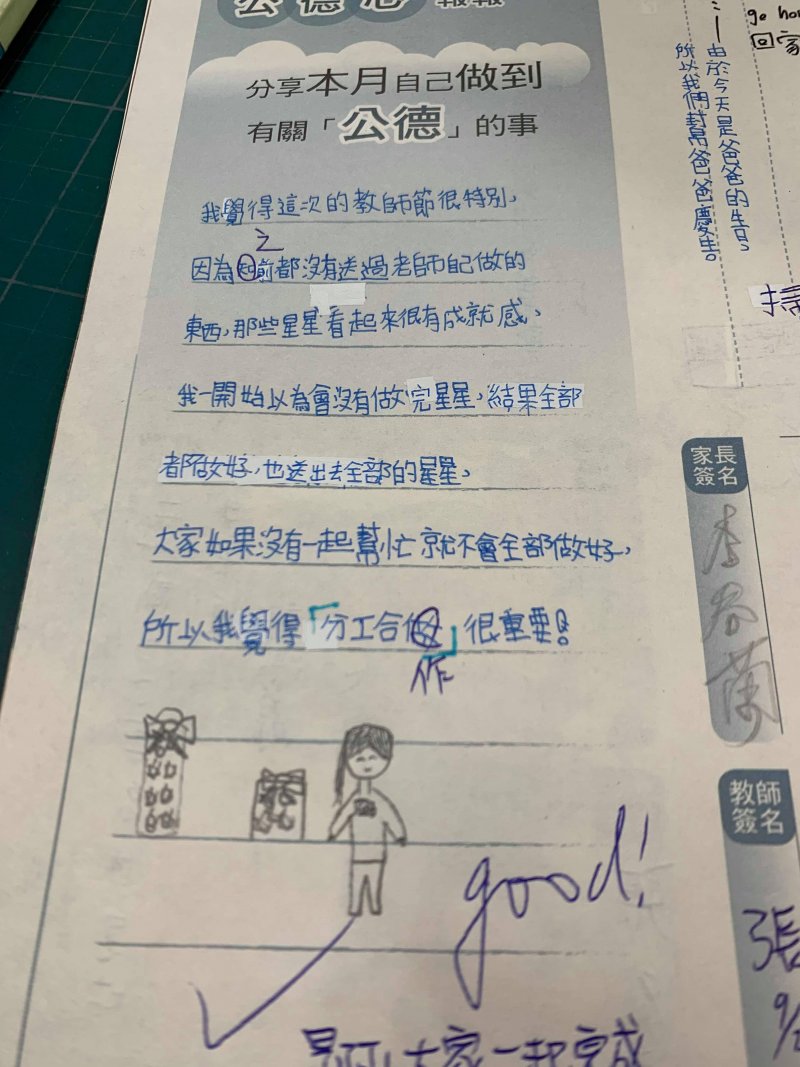 公德心報報
分享本月自己做到
有關「公德」的事
我覺得這次的教師節很特別,
之
因為前都沒有送過老師自己做的
東西,那些星星看起來很有成就感、
我一開始以為會沒有做完星星,結果全部
都做好,也送出去全部的星星、
大家如果沒有一起幫忙就不會全部做好,
所以我覺得「分工合做」很重要!
作
good!
大家一起完成
由於今天是爸爸的生日
所以我們幫爸爸慶生。
go hom
回家
掃
家長
簽名
李春蘭
教師
簽名
張
9/2